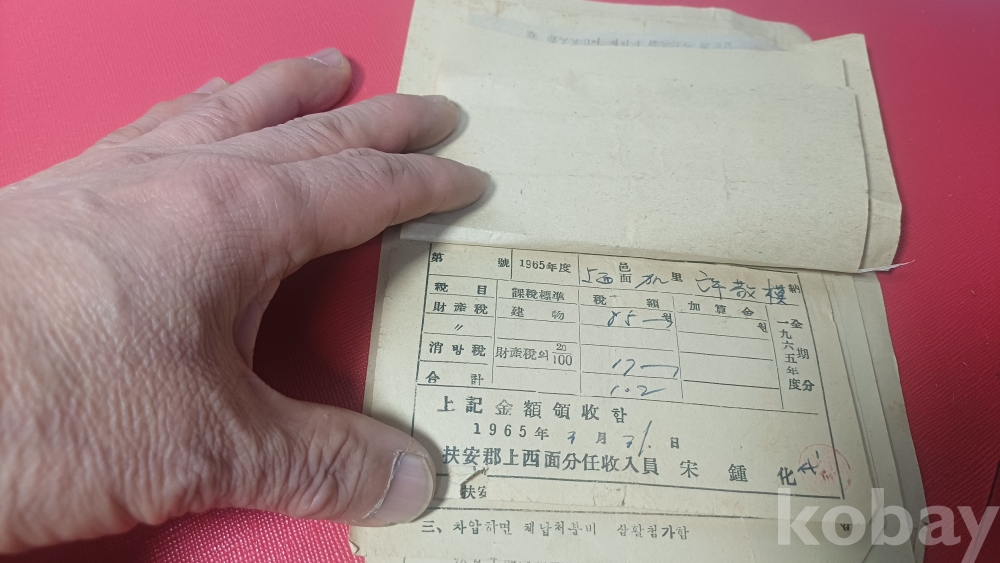 第 號 1965年度 上西 邑面 里 許敬模 納
税目 課税標準 税額 加算金
財産税 建物 85 원 원
〃
消防税 財産税의 20/100 17
合計 102
一九六五年度 全期分
上記金額領收함
1965年 3月 31日
扶安郡上西面分任收入員 宋鍾化
扶安
三、차압하면 체납처분비
kobay